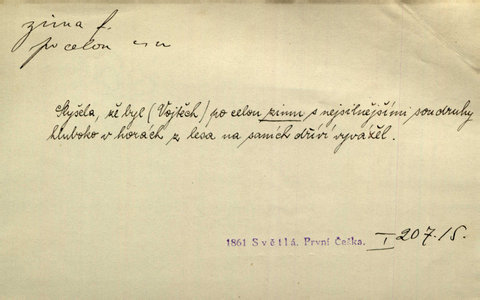 zima f.
po celou
Slyšela, že byl (Vojtěch) po celou zimu s nejsilnějšími soudruhy
hluboko v horách z lesa na saních dříví vyvážel.
1861 Světlá. První Češka. I 207.15.